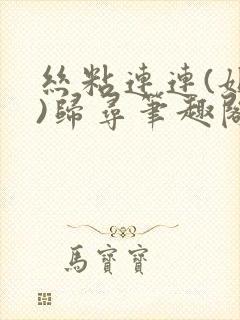 絲粘連連(
)歸尋筆趣
馬寶寶